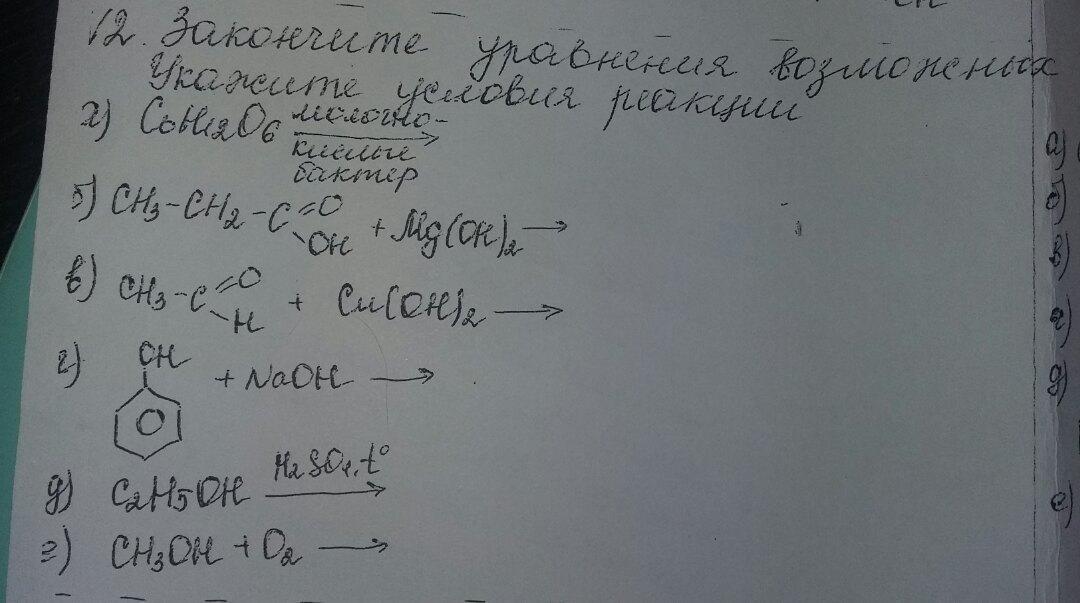 √2. Закончите уравнения возможных
Укажите условия реакции
а) C6H12O6 молочно-кислые бактер →
б) CH3-CH2-C=O OH + Mg(OH)2 →
в) CH3-C=O H + Cu(OH)2 →
г) OH + NaOH →
д) C2H5OH H2SO4, t° →
е) CH3OH + O2 →
а)
б)
в)
г)
д)
е)